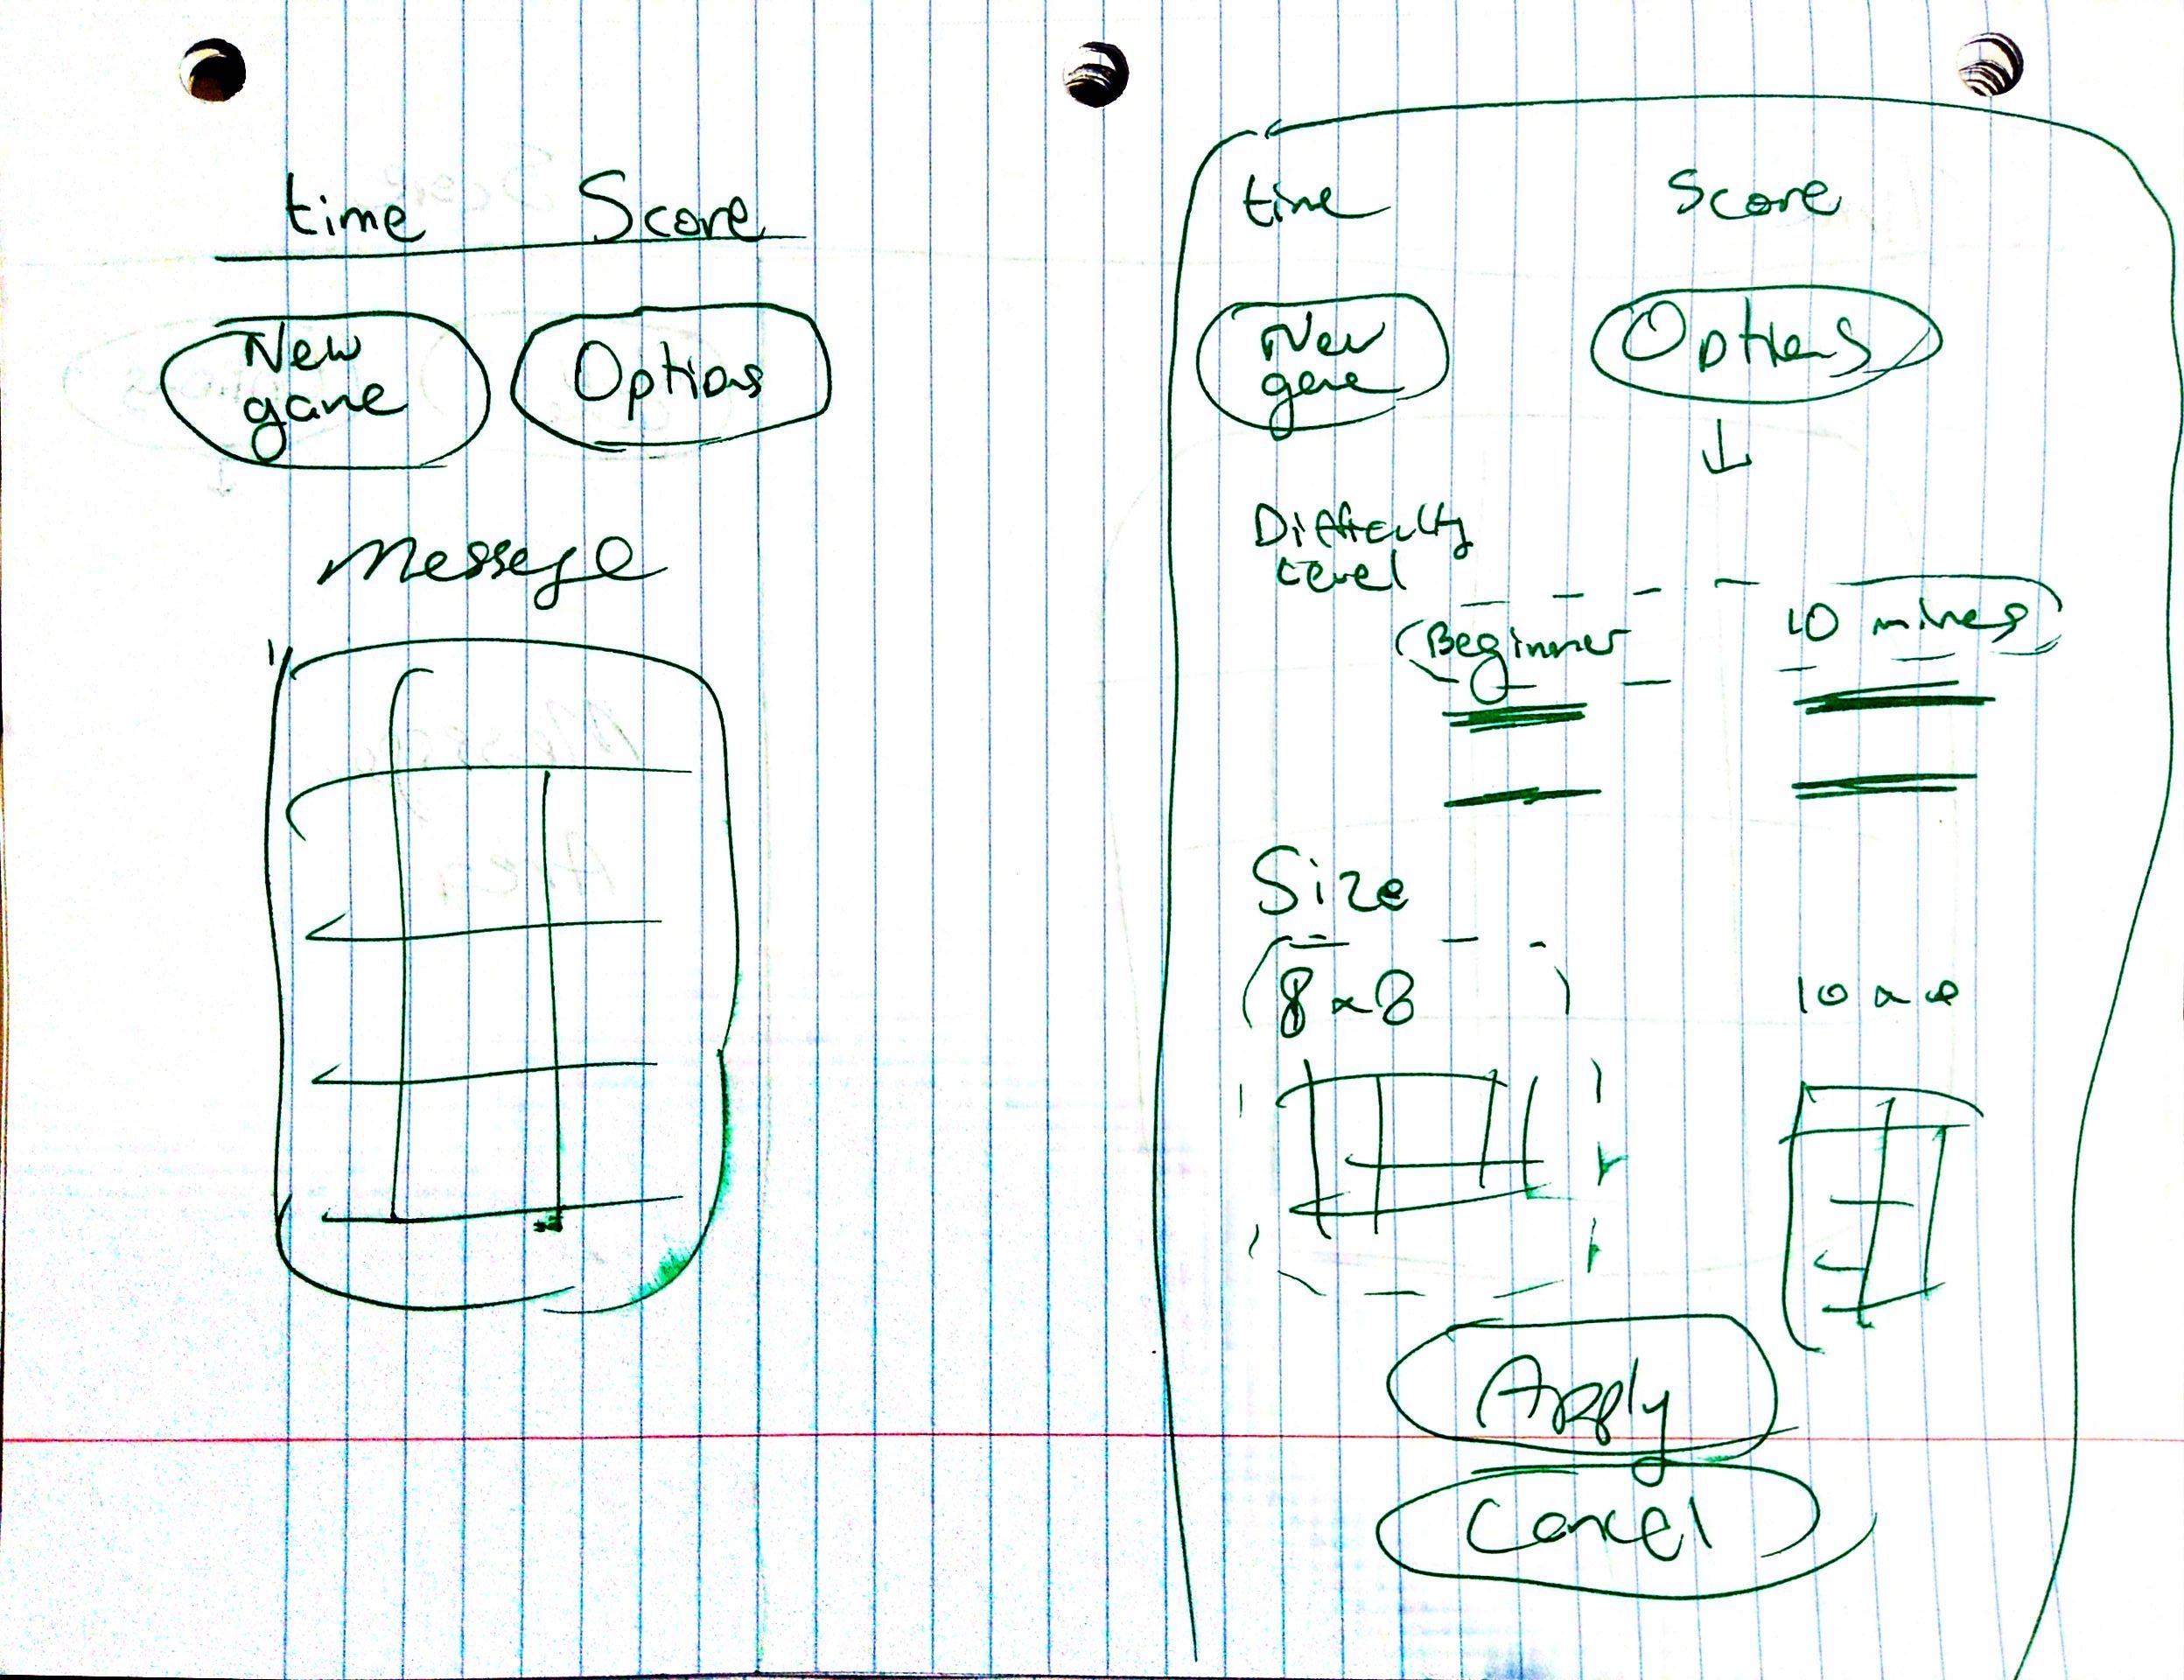 time Score
New
game
Options
Message
time Score
New
game
Options
Difficulty
Level
Beginner 10 mines
Size
8x8 10x
Apply
Cancel